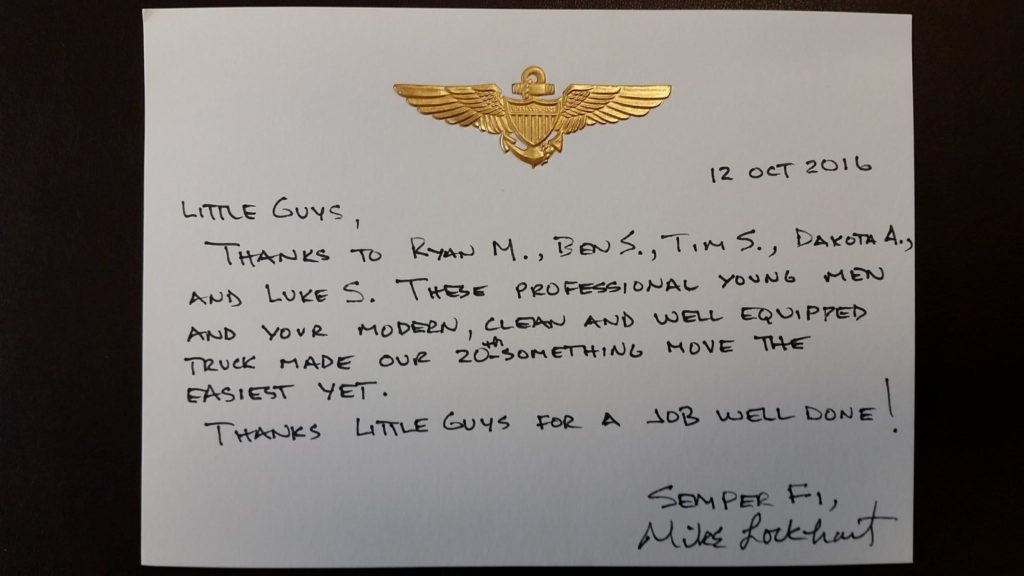 12 OCT 2016
LITTLE GUYS,
THANKS TO RYAN M., BEN S., TIM S., DAKOTA A.,
AND LUKE S. THESE PROFESSIONAL YOUNG MEN
AND YOUR MODERN, CLEAN AND WELL EQUIPPED
TRUCK MADE OUR 20th-SOMETHING MOVE THE
EASIEST YET.
THANKS LITTLE GUYS FOR A JOB WELL DONE!
SEMPER FI,
Mike Lockhart